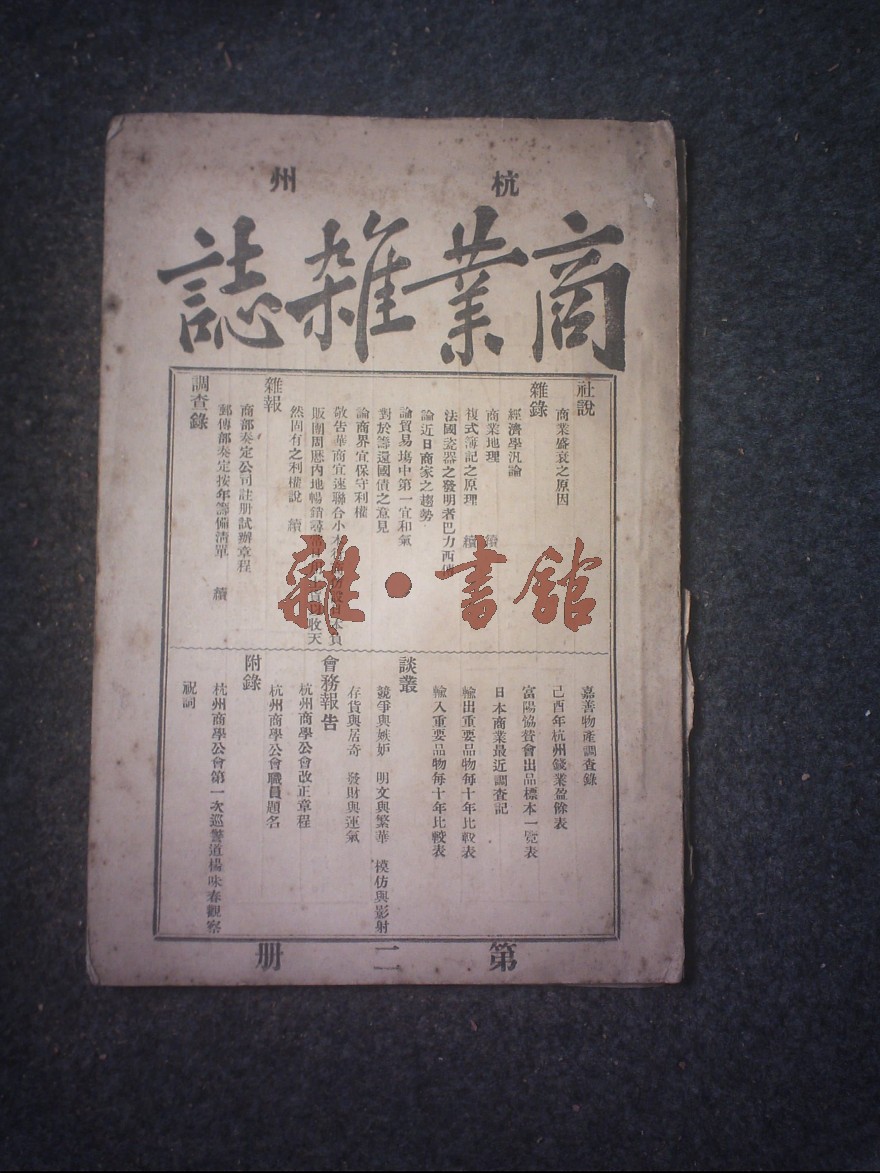 杭州
商業雜誌
社說
商業盛衰之原因
雜錄
經濟學汎論
商業地理 續
複式簿記之原理 續
法國瓷器之發明者巴力西傳
論近日商家之趨勢
論貿易場中第一宜和氣
對於籌還國債之意見
論商界宜保守利權
敬告華商宜速聯合小本
販團周歷內地暢銷 收天
然固有之利權說 續
雜報
商部奏定公司註册試辦章程
郵傳部奏定按年籌備清單 續
調查錄
嘉善物產調查錄
己酉年杭州錢業盈餘表
富陽協贊會出品標本一覽表
日本商業最近調查記
輸出重要品物每十年比較表
輸入重要品物每十年比較表
談叢
競爭與嫉妒 明文與繁華 模仿與影射
存貨與居奇 發財與運氣
會務報告
杭州商學公會改正章程
杭州商學公會職員題名
附錄
杭州商學公會第一次巡警道楊味春觀察
祝詞
第二册
雜·書館